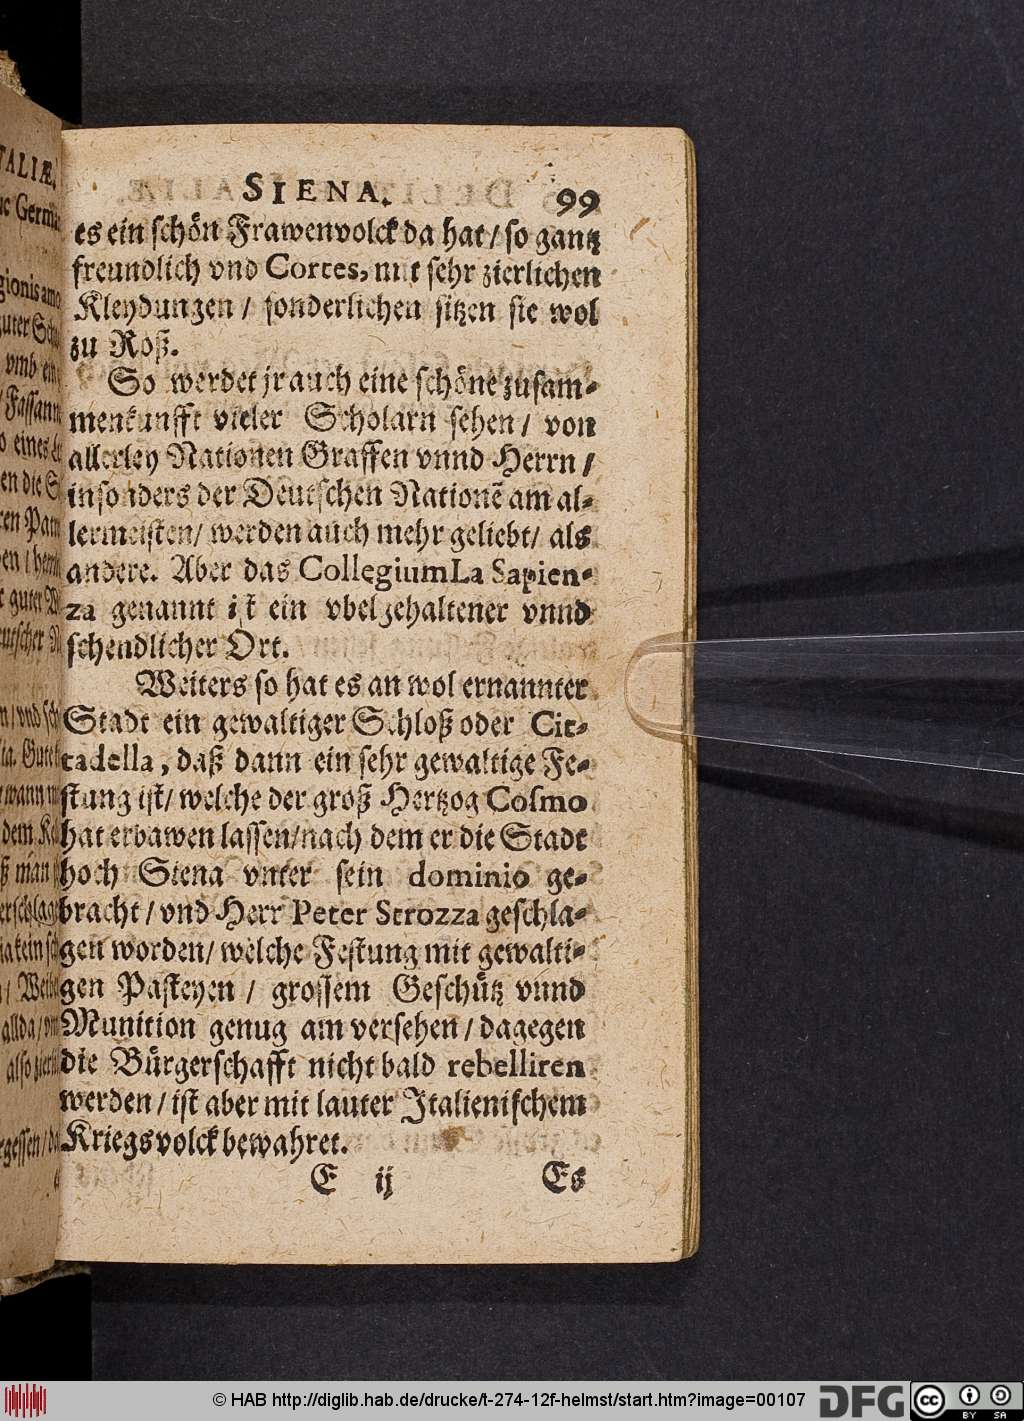 SIENA. 99
es ein schön Frawenvolck da hat / so gantz
freundlich vnd Cortes, mit sehr zierlichen
Kleydungen / sonderlichen sitzen sie wol
zu Roß.
So werdet jr auch eine schöne zusam-
menkunfft vieler Scholarn sehen / von
allerley Nationen Graffen vnnd Herrn /
insonders der Deutschen Nationē am al-
lermeisten / werden auch mehr geliebt / als
andere. Aber das Collegium La Sapien-
za genannt ist ein vbelgehaltener vnnd
schendlicher Ort.
Weiters so hat es an wol ernannter
Stadt ein gewaltiger Schloß oder Cit-
tadella, daß dann ein sehr gewaltige Fe-
stung ist / welche der groß Hertzog Cosmo
hat erbawen lassen / nach dem er die Stadt
hoch Siena vnter sein dominio ge-
bracht / vnd Herr Peter Strozza geschla-
gen worden / welche Festung mit gewalti-
gen Pasteyen / grossem Geschütz vnnd
Munition genug am versehen / dagegen
die Bürgerschafft nicht bald rebelliren
werden / ist aber mit lauter Italienischem
Kriegsvolck bewahret.
E ij Es
© HAB http://diglib.hab.de/drucke/t-274-12f-helmst/start.htm?image=00107
DFG
cc BY SA